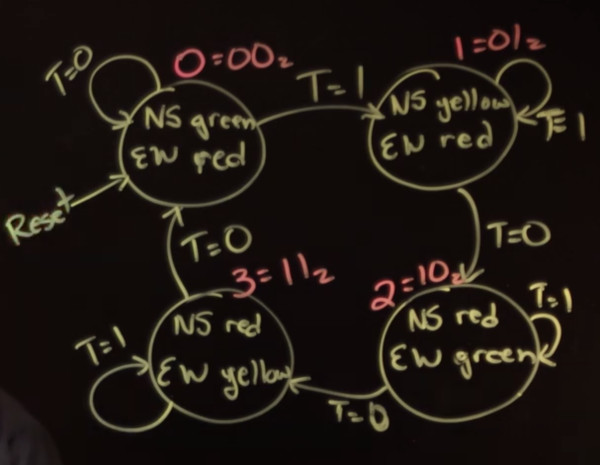 T=0
0=00₂
NS green
EW red
Reset
T=1
1=01₂
NS yellow
EW red
T=1
T=0
2=10₂
NS red
EW green
T=1
T=0
3=11₂
NS red
EW yellow
T=1
T=0